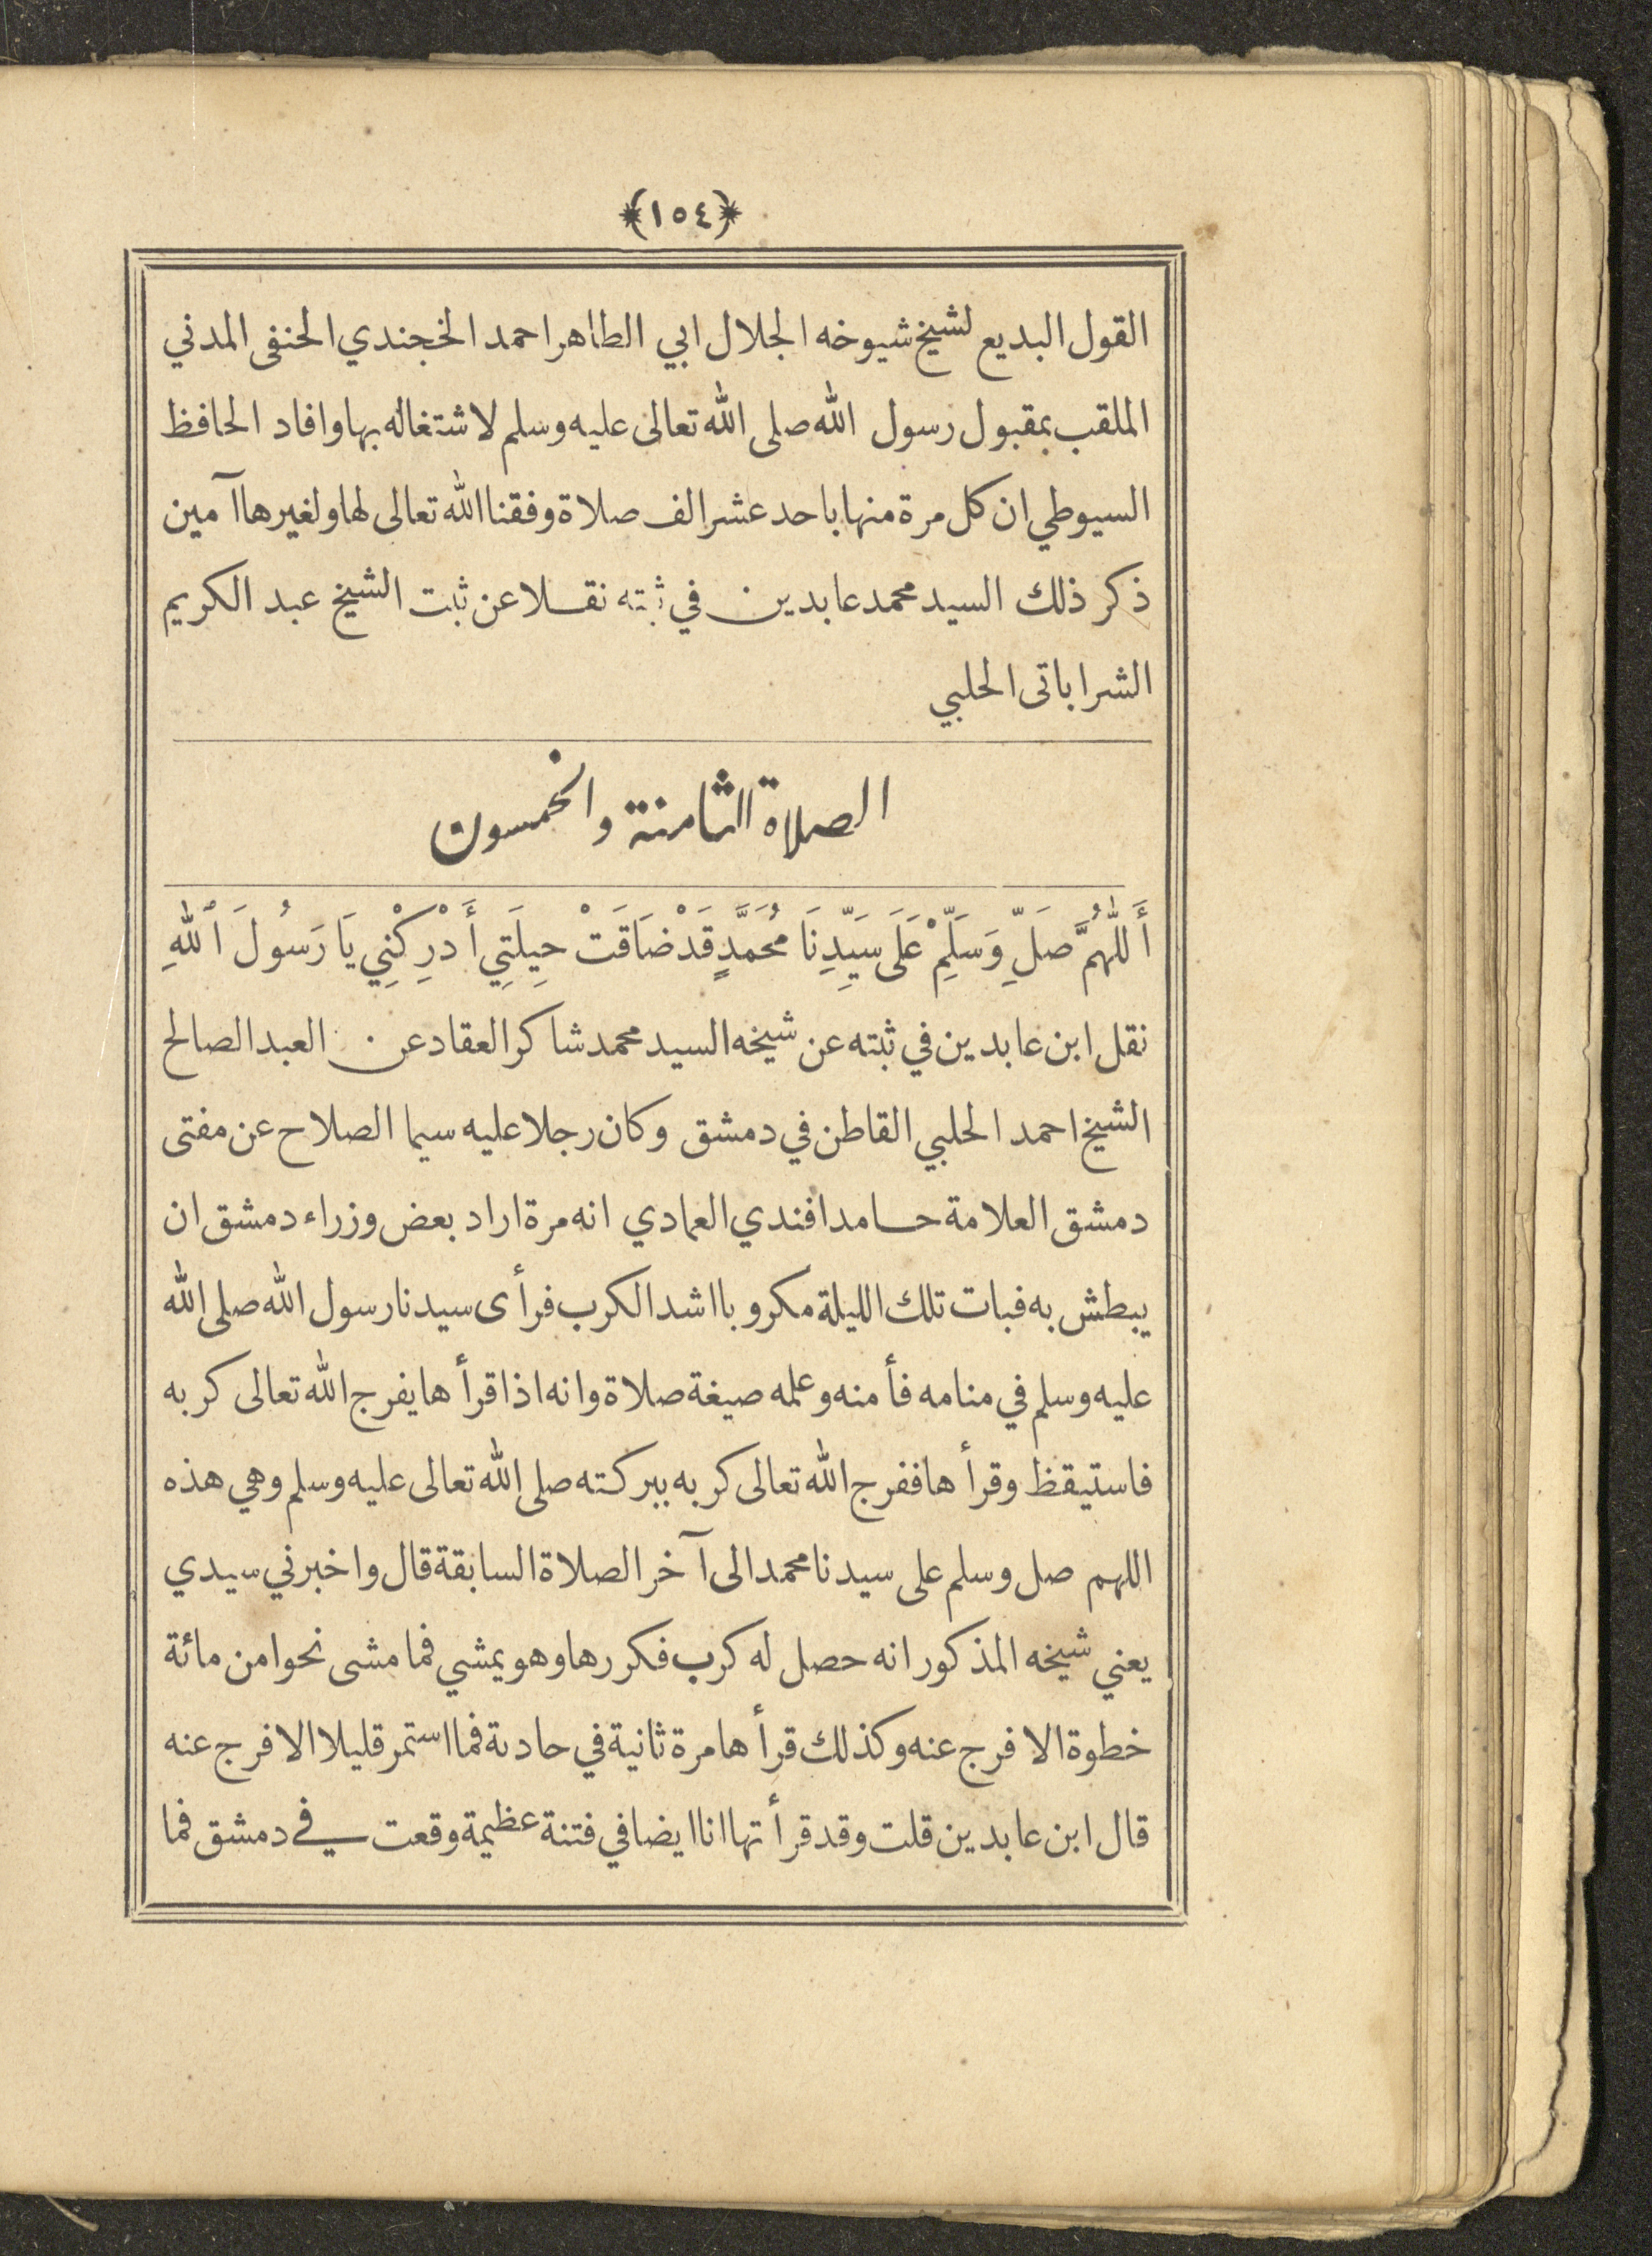 ﴿١٥٤﴾
القول البديع لشيخ شيوخه الجلال ابي الطاهر احمد الخجندي الحنفى المدني
الملقب بمقبول رسول الله صلى الله تعالى عليه وسلم لاشتغاله بها وافاد الحافظ
السيوطي ان كل مرة منها باحد عشر الف صلاة وفقنا الله تعالى لها ولغيرها آمين
ذكر ذلك السيد محمد عابدين في ثبته نقلا عن ثبت الشيخ عبد الكريم
الشراباتى الحلبي
الصلاة الثامنة والخمسون
أَللّٰهُمَّ صَلِّ وَسَلِّمْ عَلَى سَيِّدِنَا مُحَمَّدٍ قَدْ ضَاقَتْ حِيلَتِي أَدْرِكْنِي يَا رَسُولَ ٱللهِ
نقل ابن عابدين في ثبته عن شيخه السيد محمد شاكر العقاد عن العبد الصالح
الشيخ احمد الحلبي القاطن في دمشق وكان رجلا عليه سيما الصلاح عن مفتى
دمشق العلامة حامد افندي العمادي انه مرة اراد بعض وزراء دمشق ان
يبطش به فبات تلك الليلة مكروبا اشد الكرب فرأى سيدنا رسول الله صلى الله
عليه وسلم في منامه فأمنه وعلمه صيغة صلاة وانه اذا قرأها يفرج الله تعالى كربه
فاستيقظ وقرأها ففرج الله تعالى كربه ببركته صلى الله تعالى عليه وسلم وهي هذه
اللهم صل وسلم على سيدنا محمد الى آخر الصلاة السابقة قال واخبرني سيدي
يعني شيخه المذكور انه حصل له كرب فكررها وهو يمشي فما مشى نحوا من مائة
خطوة الا فرج عنه وكذلك قرأها مرة ثانية في حادثة فما استمر قليلا الا فرج عنه
قال ابن عابدين قلت وقد قرأتها انا ايضا في فتنة عظيمة وقعت في دمشق فما